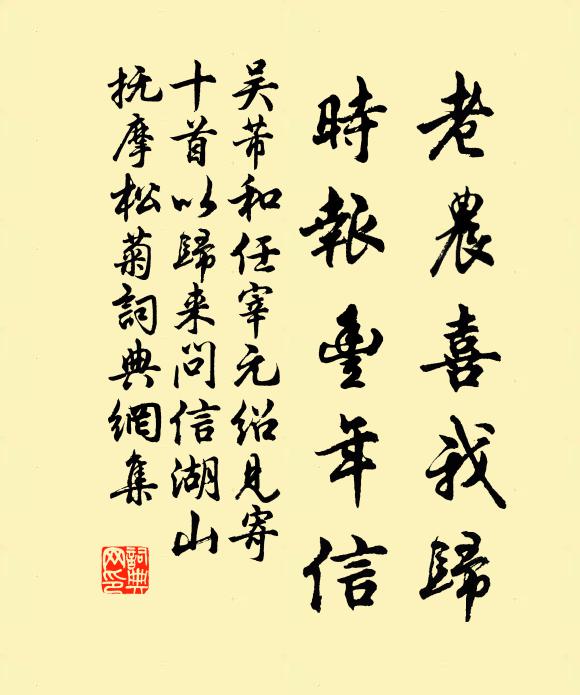 老農喜我歸
時報豐年信
吴芾和任宰元紹見寄
十首以歸来問信湖山
抚摩松菊詞典網集
詞典
网印